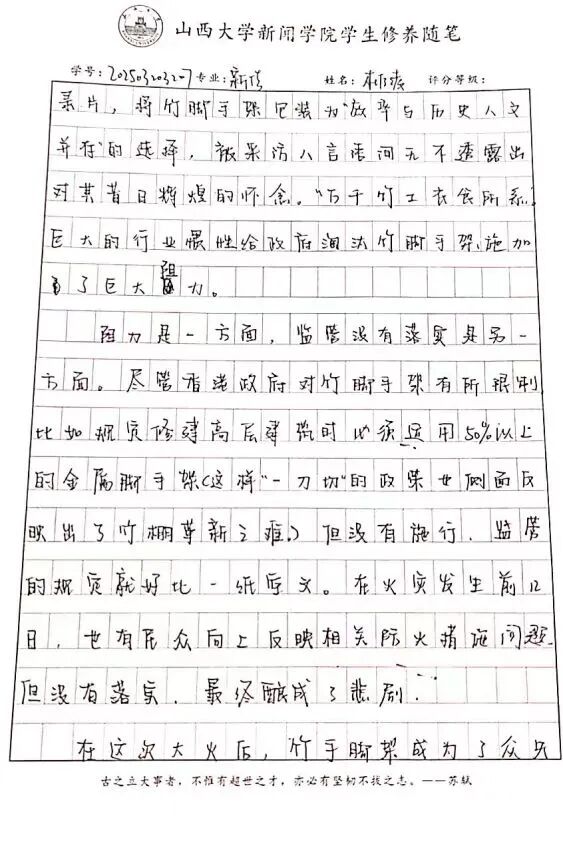 山西大学新闻学院学生修养随笔
学号：202503203207 专业：新传 姓名： 评分等级：
录片，将竹脚手架包装为“效率与历史人文
并存”的选择，被采访人言语间无不透露出
对其昔日辉煌的怀念。“万千竹工衣食所系”
巨大的行业惯性给政府淘汰竹脚手架施加
了巨大阻力。
阻力是一方面，监管没有落实是另一
方面。尽管香港政府对竹脚手架有所限制
比如规定修建高层建筑时必须运用50%以上
的金属脚手架（这样“一刀切”的政策也侧面反
映出了竹棚革新之难。）但没有施行，监管
的规定就好比一纸空文。在火灾发生前12
日，也有民众向上反映相关防火措施问题，
但没有落实，最终酿成了悲剧.
在这次大火后，竹手脚架成为了众矢
古之立大事者，不惟有超世之才，亦必有坚韧不拔之志。——苏轼